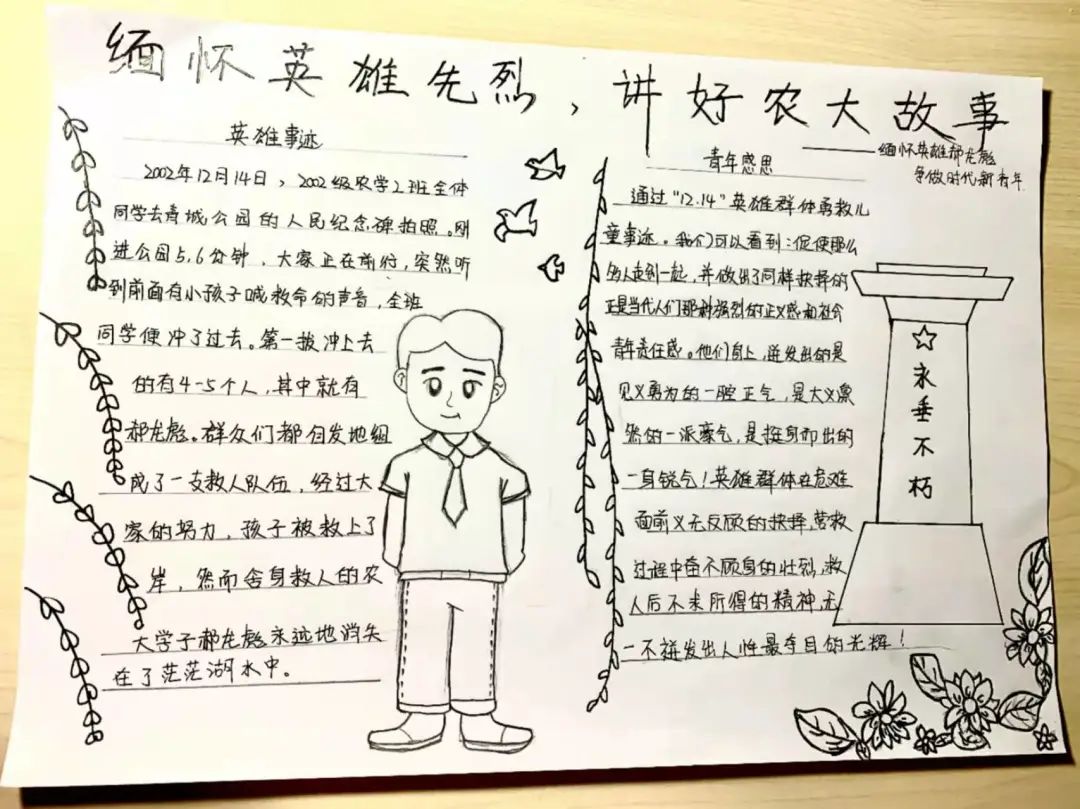 缅怀英雄先烈，讲好农大故事
——缅怀英雄郝龙彪
争做时代新青年
英雄事迹
2002年12月14日，2002级农学2班全体
同学去青城公园的人民纪念碑拍照。刚
进公园5.6分钟，大家正在前行，突然听
到前面有小孩子喊救命的声音，全班
同学便冲了过去。第一拨冲上去
的有4-5个人，其中就有
郝龙彪。群众们都自发地组
成了一支救人队伍，经过大
家的努力，孩子被救上了
岸，然而舍身救人的农
大学子郝龙彪永远地消失
在了茫茫湖水中。
青年感思
通过“12.14”英雄群体勇救儿
童事迹。我们可以看到：促使那么
多人走到一起，并做出了同样抉择的
正是当代人们那种强烈的正义感和社会
青年责任感。他们身上，迸发出的是
见义勇为的一腔正气，是大义凛
然的一派豪气，是挺身而出的
一身锐气！英雄群体在危难
面前义无反顾的抉择，营救
过程中奋不顾身的壮烈，救
人后不求所得的精神，无
一不迸发出人性最夺目的光辉！
永垂不朽